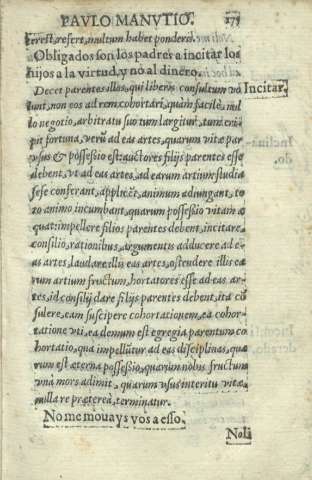 PAVLO MANVTIO. 275
terest, refert, multum habet ponderis.
Obligados son los padres a incitar los
hijos a la virtud, y nó al dinero.
Decet parentes illos, qui liberis consultum vo
lunt, non eos ad rem cohortari, quàm facilè, nul
lo negotio, arbitratu suo tum largitur, tum eri-
pit fortuna, verũ ad eas artes, quarum vitæ par
vsus & possessio est: auctores filijs parentes esse
debent, vt ad eas artes, ad earum artium studia
sese conferant, applicẽt, animum adiungant, to
to animo incumbant, quarum possessio vitam æ
quat: impellere filios parentes debent, incitare,
consilio, rationibus, argumentis adducere ad e-
as artes, laudare illis eas artes, ostendere illis ea
rum artium fructum, hortatores esse ad eas ar-
tes, id consilij dare filijs parentes debent, ita cõ
sulere, eam suscipere cohortationem, ea cohor-
tatione vti, ea demum est egregia parentum co
hortatio, qua impellũtur ad eas disciplinas, qua
rum est æterna possessio, quarum nobis fructum
vna mors adimit, quarum vsus interitu vitæ,
nulla re præterea, terminatur.
No me mouays vos a esso.
Noli
Incitar.